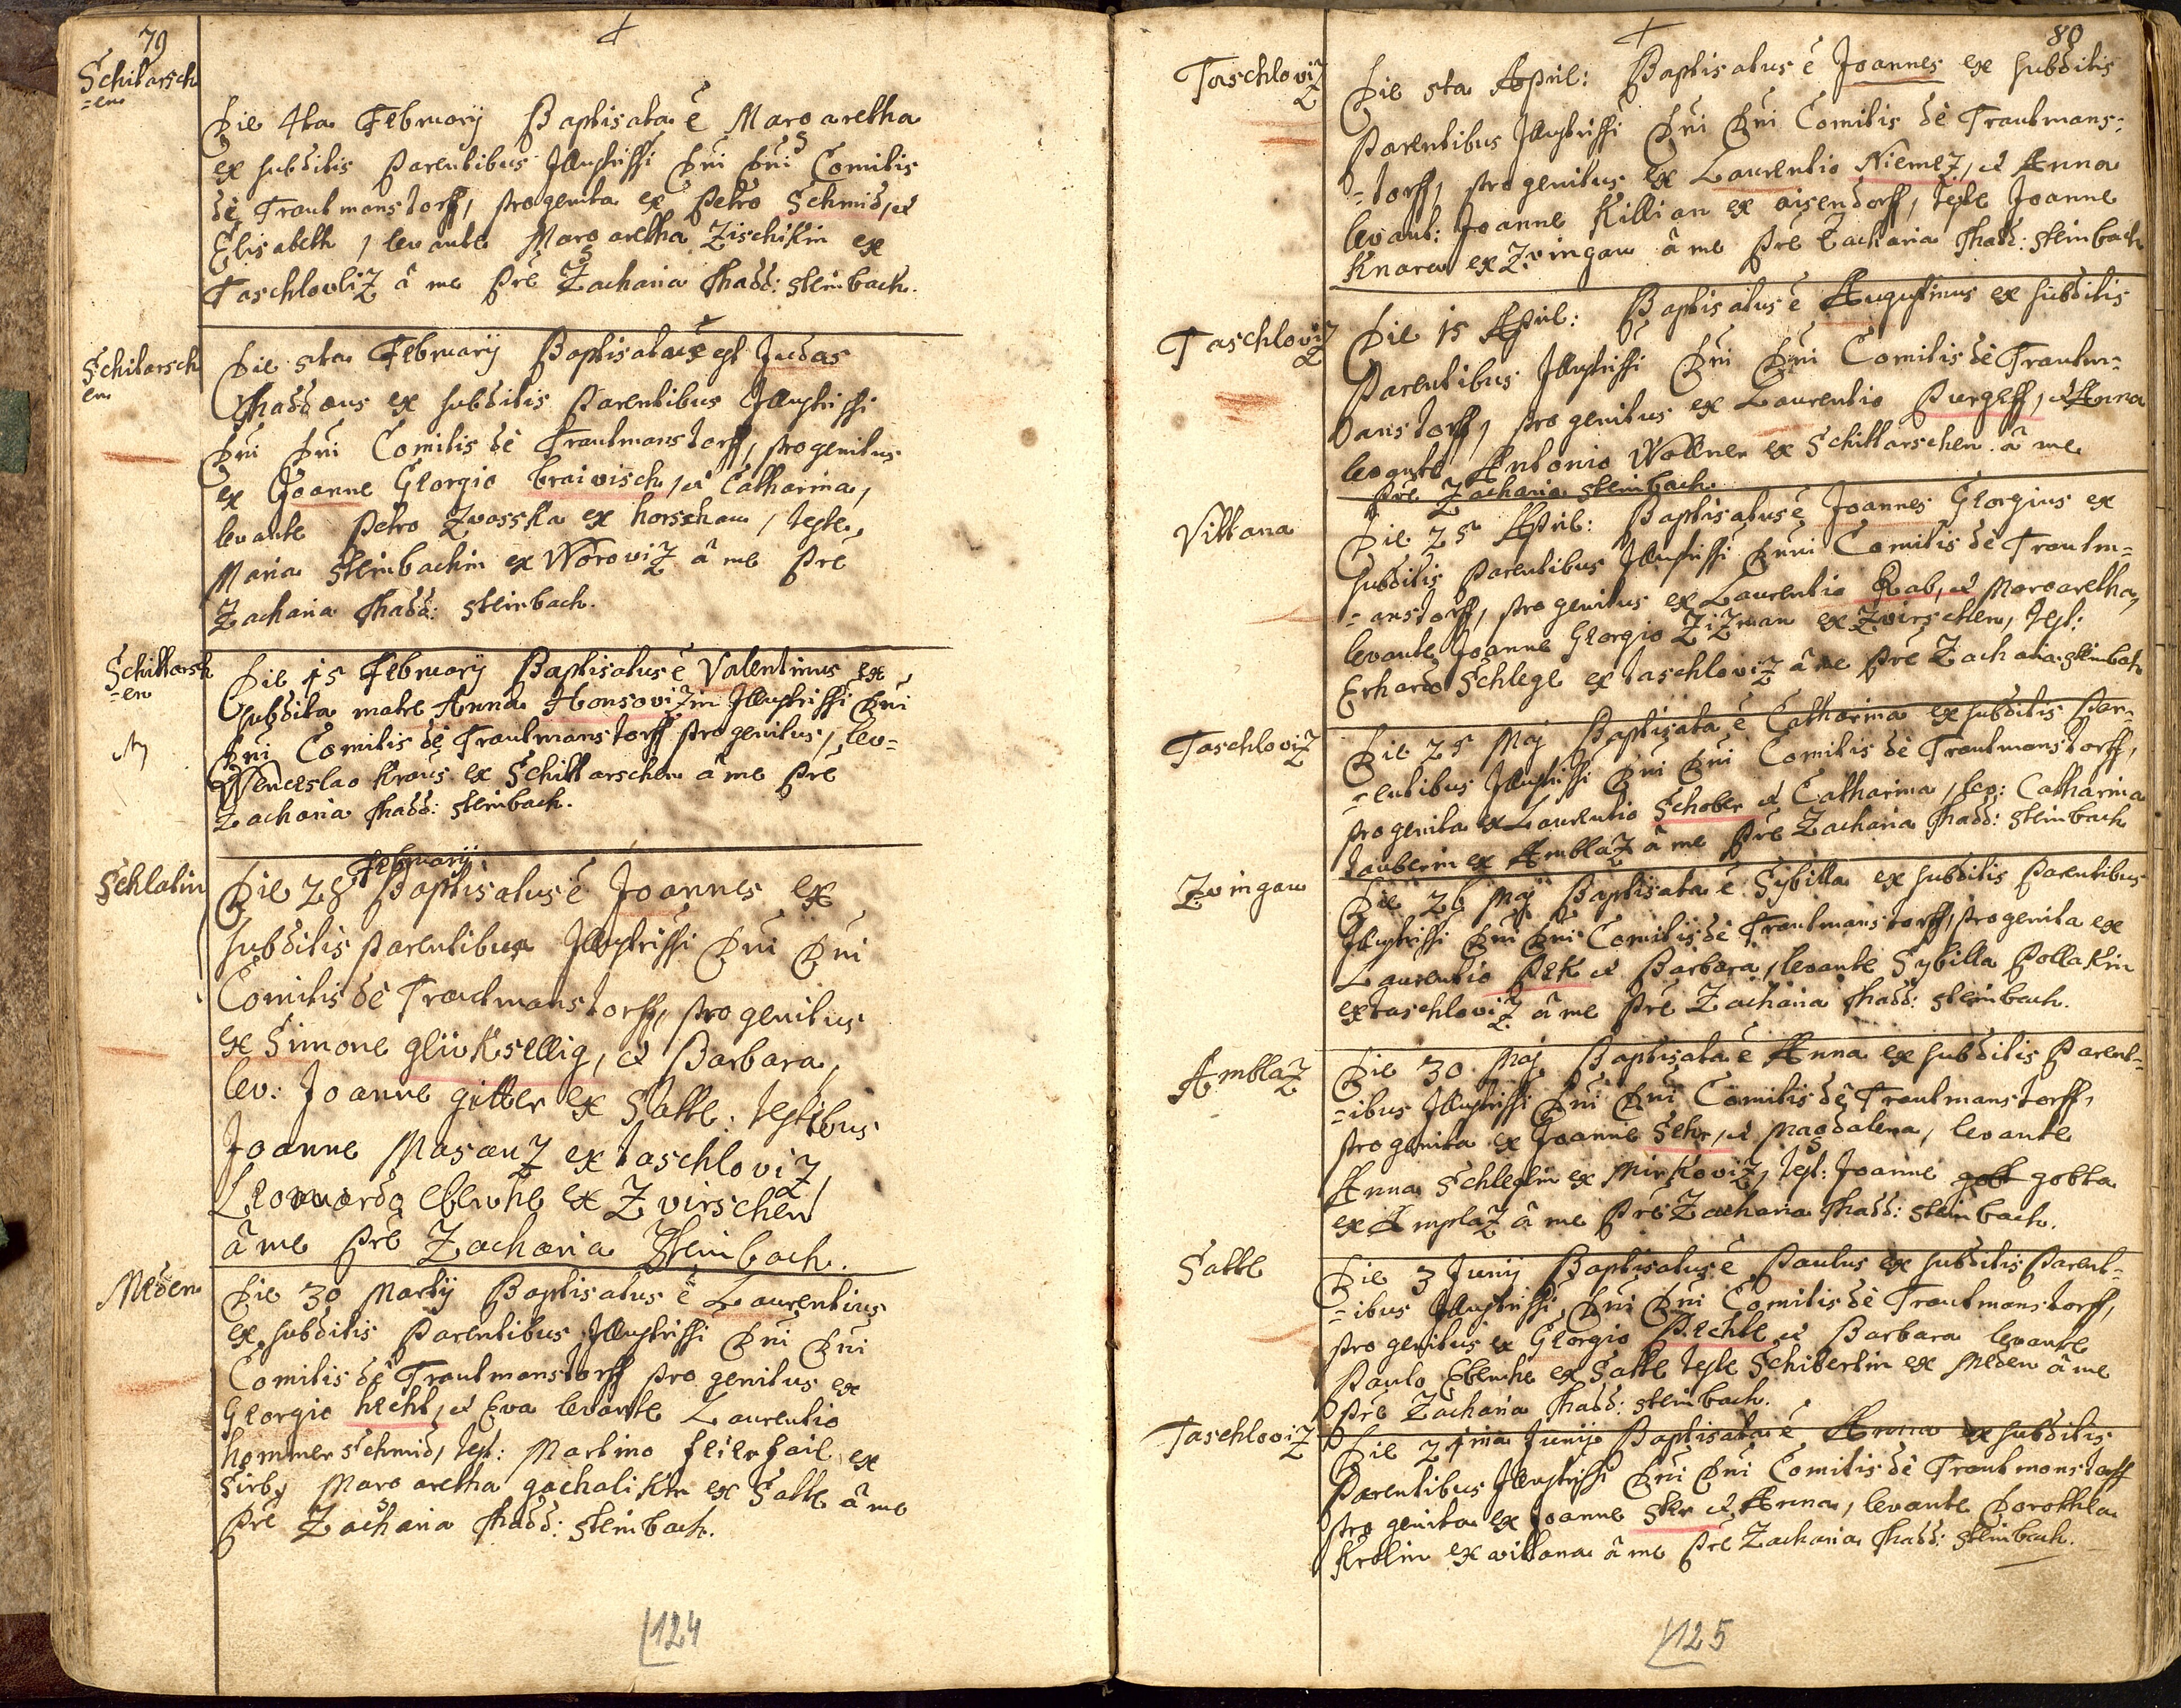 79
Schitarsch
=en
Die 4ta February Baptisata ê Margaretha
ex subditis Parentibus Illustrissi Dni Dni Comitis
dê Trautmanstorff, progenita ex Petro Schmid, et
Elisabeth, levante Margaretha Zischikin ex
Taschlovitz â me Pre Zacharia Thadd: steinbach.
Schitarsch
en
Die 5ta February Baptisatus est Judas
Thaddaus ex subditis Parentibus Illustrissi
Dni Dni Comitis dê Trautmanstorff, progenitus
ex Joanne Georgio braivisch, et Catharina,
levante Petro Zvosska ex horschau, teste
Maria steinbachin ex Worovitz â me Pre
Zacharia Thadd: steinbach.
Schittarsch
=en
Die 15 February Baptisatus ê Valentinus ex
subdita matre Anna Honsovitzin Illustrissi Dni
Dni Comitis dê Trautmanstorff progenitus, lev=
Wenceslao Kraus ex Schittarschen â me Pre
Zacharia Thadd: steinbach.
Schlatin
February
Die 28 Baptisatus ê Joannes ex
subditis parentibus Illustrissi Dni Dni
Comitis dê Trautmanstorff, progenitus
ex Simone glivksellig, et Barbara,
lev: Joanne gitter ex Satte: testibus
Joanne Masantz ex taschlovitz,
Leonardo Ebenhe ex Zvirschen
â me Pre Zacharia Steinbach.
Meden
Die 30 Martij Baptisatus ê Laurentius
ex subditis Parentibus Illustrissi Dni Dni
Comitis dê Trautmanstorff progenitus ex
Georgio hecht, et Eva levante Laurentio
hommerschmid, test: Martino feierfail ex
Sirb, Margaretha gachalikin ex Satte â me
Pre Zacharia Thadd: steinbach.
124
80
Taschlovitz
Die 5ta April: Baptisatus ê Joannes ex subditis
Parentibus Illustrissi Dni Dni Comitis dê Trautmans=
=torff, progenitus ex Laurentio Niemetz, et Anna
levant: Joanne Killian ex aisendorff, teste Joanne
Knara ex Zvingau â me Pre Zacharia Thadd: steinbach
Taschlovitz
Die 15 April: Baptisatus ê Augustinus ex subditis
Parentibus Illustrissi Dni Dni Comitis dê Trautm=
anstorff, progenitus ex Laurentio Purgeff, et Anna
levante Antonio Wollner ex Schittarschen â me
Pre Zacharia steinbach.
Vittana
Die 25 April: Baptisatus ê Joannes Georgius ex
subditis Parentibus Illustrissi Dnni Comitis dê Trautm=
=anstorff, progenitus ex Laurentio Rab, et Margaretha,
levante Joanne Georgio Zitzman ex Zvirschen, test:
Erhardo Schlegl ex taschlovitz â me Pre Zacharia steinbach
Taschlovitz
Die 25 Maj Baptisata ê Catharina ex subditis Par=
=entibus Illustrissi Dni Dni Comitis dê Trautmanstorff,
progenita ex Laurentio Schober et Catharina, lev: Catharina
tauberin ex Amblatz â me Pre Zacharia Thadd: steinbach
Zvingau
Die 26 Maj Baptisata ê Sybilla ex subditis Parentibus
Illustrissi Dni Dni Comitis dê Trautmanstorff, progenita ex
Laurentio Pek et Barbara, levante Sybilla Pollakin
ex taschlovitz â me Pre Zacharia Thadd: steinbach.
Amblatz
Die 30 Maj Baptisata ê Anna ex subditis Parent=
=ibus Illustrissi Dni Dni Comitis dê Trautmanstorff,
progenita ex Joanne Sehr, et Magdalena, levante
Anna Schleglin ex Mirkovitz, test: Joanne gott gotta
ex Amplatz â me Pre Zacharia Thadd: steinbach.
Satte
Die 3 Junij Baptisatus ê Paulus ex subditis Parent=
=ibus Illustrissi Dni Dni Comitis dê Trautmanstorff,
progenitus ex Georgio Pechtl et Barbara levante
Paulo Ebenhe ex Satte teste Schibertin ex Meden â me
Pre Zacharia Thadd: steinbach.
Taschlovitz
Die 21ma Junij Baptisata ê Anna ex subditis
Parentibus Illustrissi Dni Dni Comitis dê Trautmanstorff
progenita ex Joanne Ster et Anna, levante Dorothea
Krolin ex vittana â me Pre Zacharia Thadd: steinbach.
125